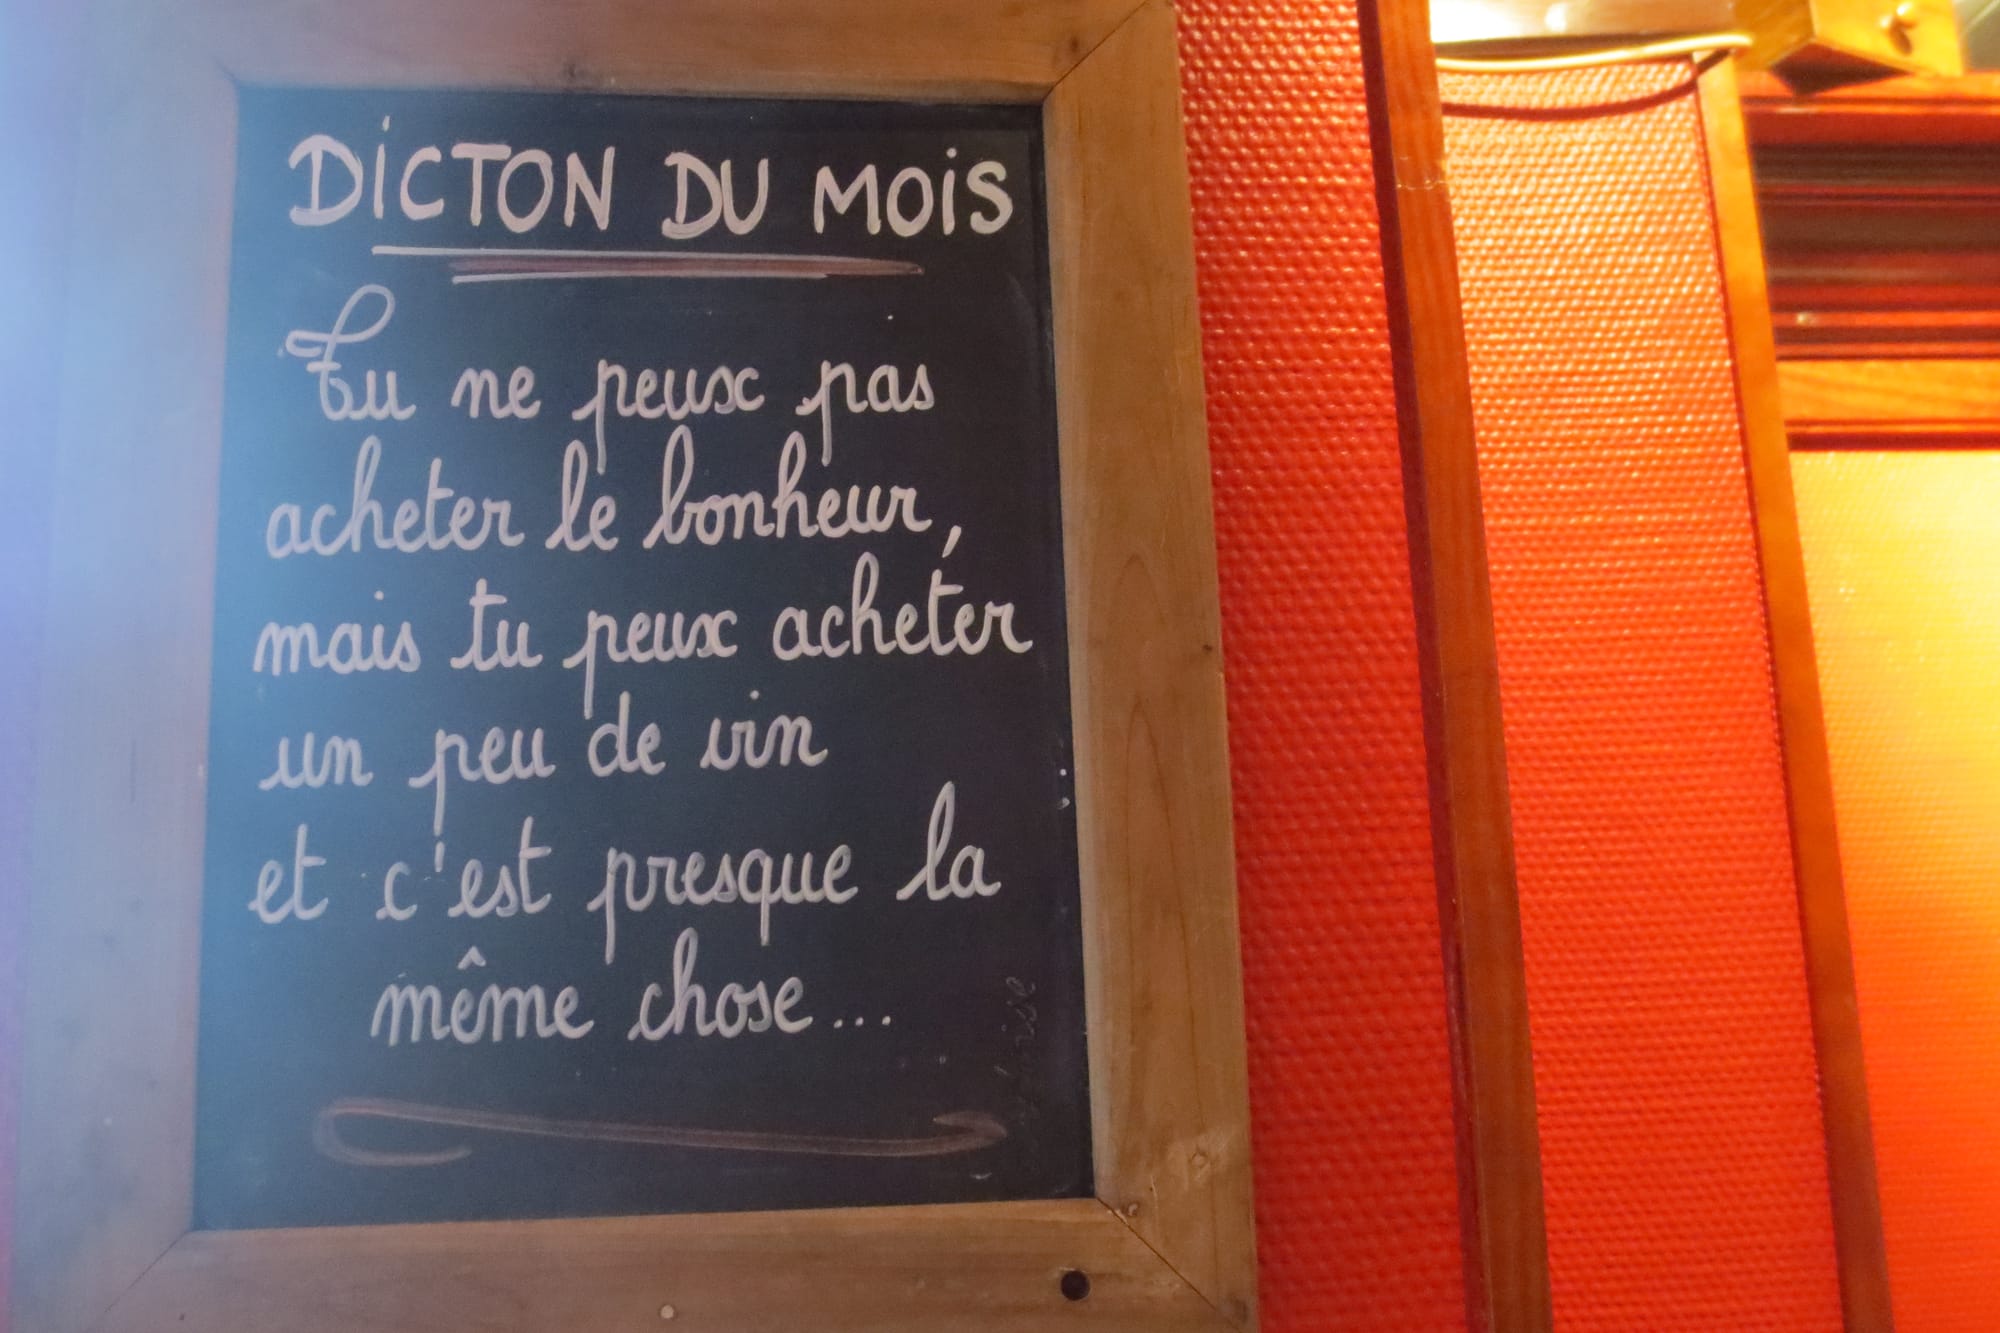 DiCTON DU MOiS
Tu ne peux pas
acheter le bonheur,
mais tu peux acheter
un peu de vin
et c'est presque la
même chose...